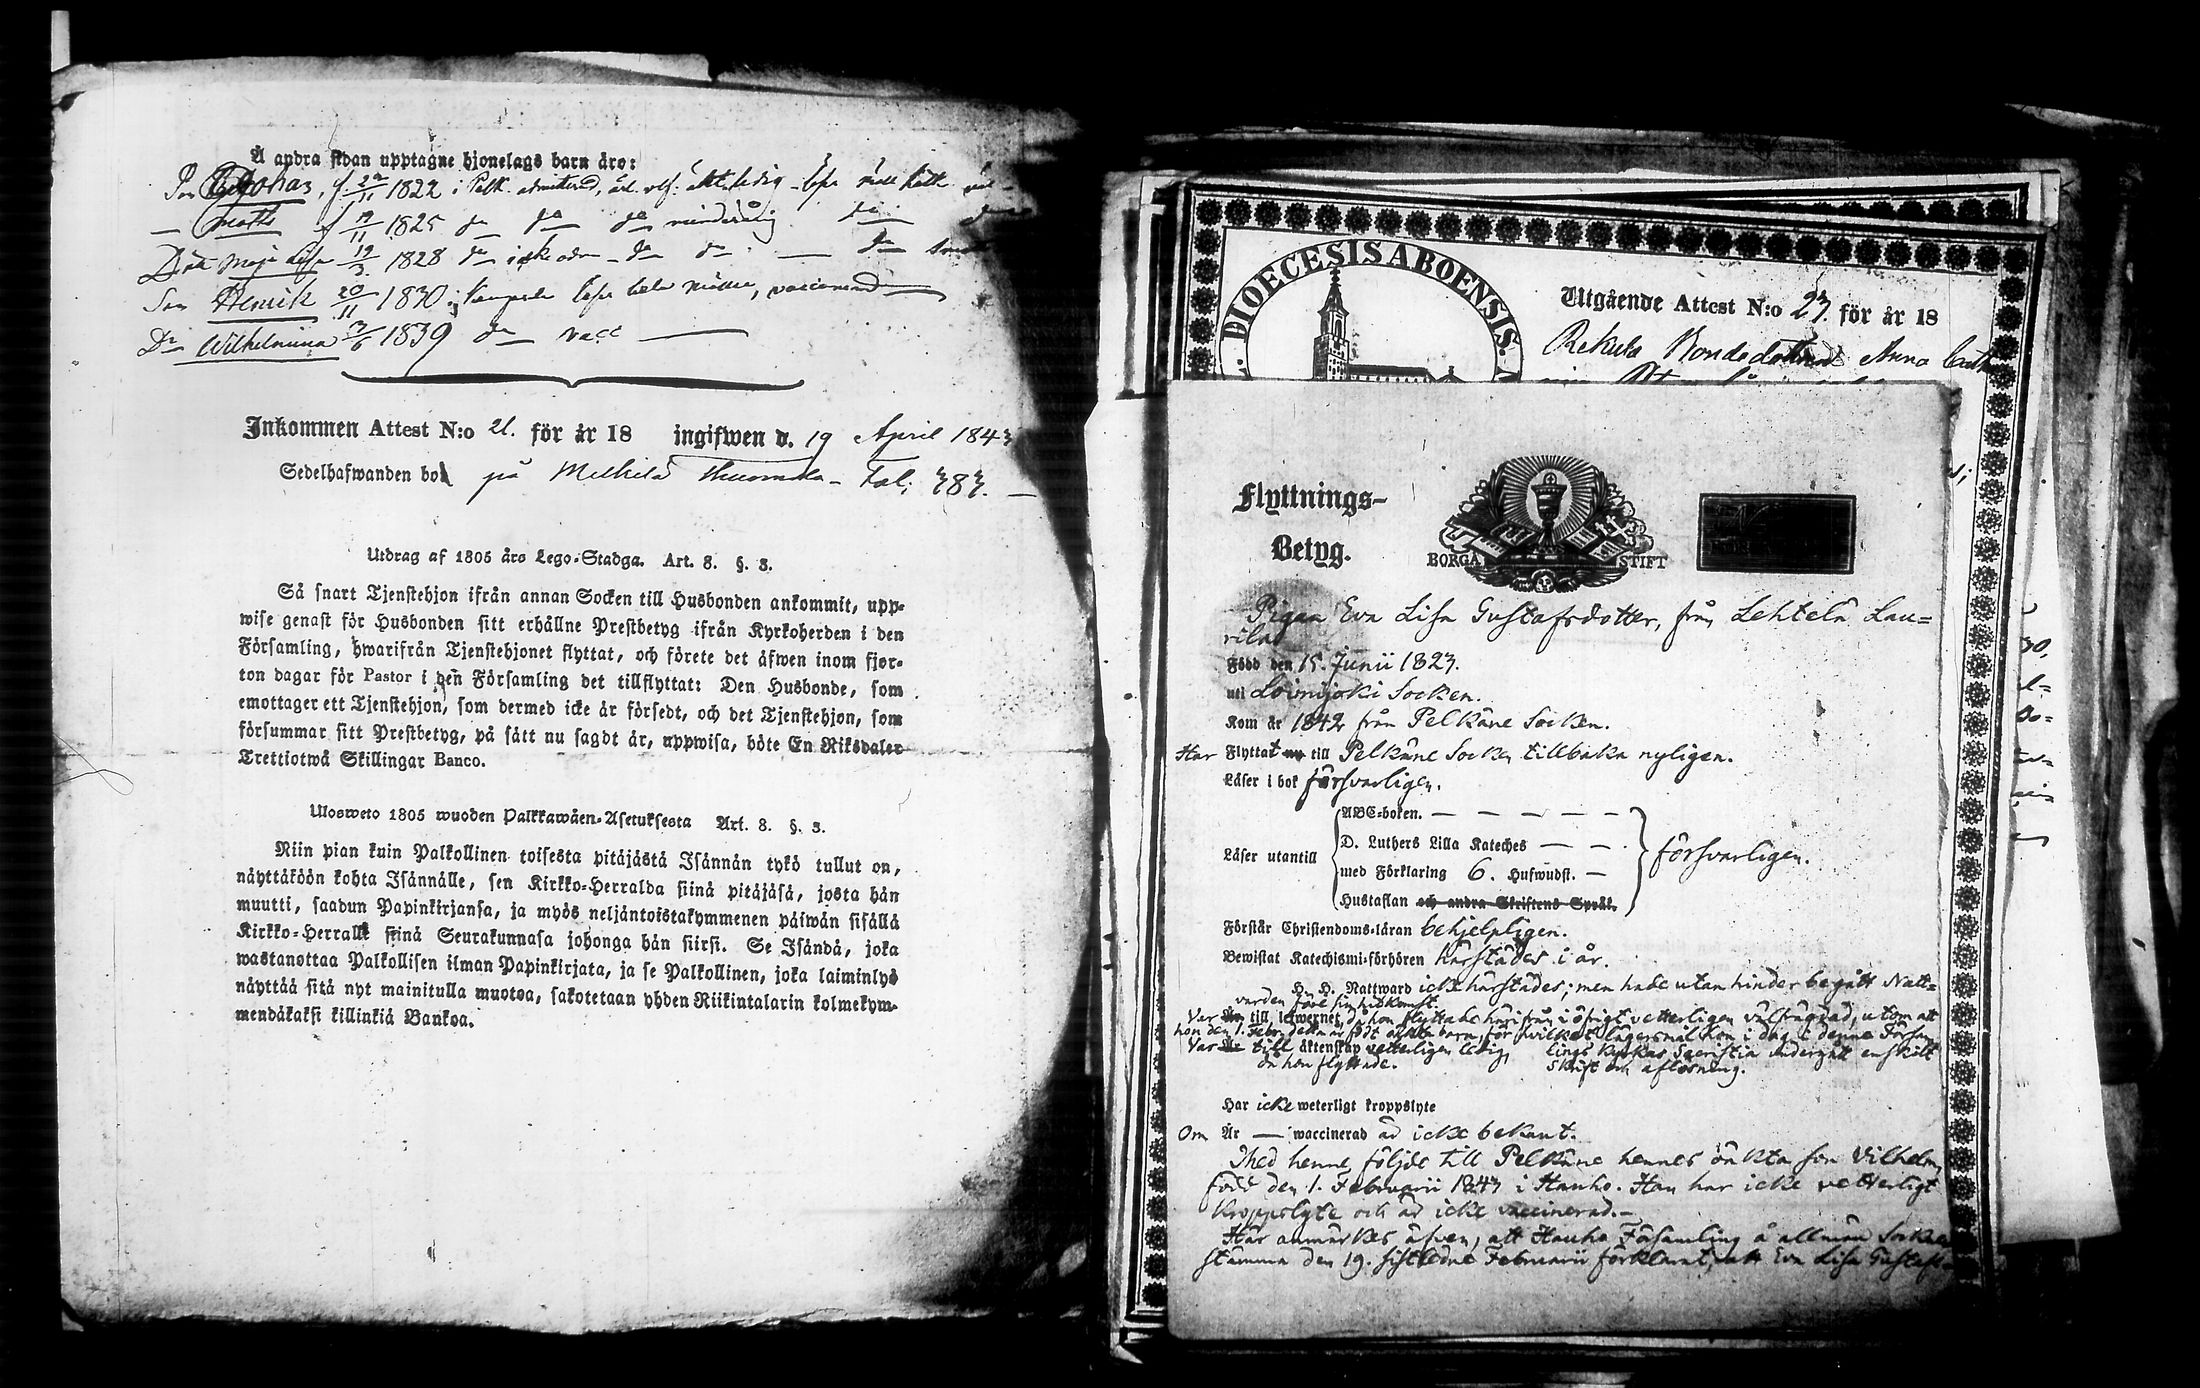 Å andra sidan upptagne hjonelags barn äro:
Son Johas, f. 22/11 1822 i Pelk. admitterad,
Matts f 1825 do do do minderårig do
Dott Maja Lisa 19/3 1828 do icke adm do do do
Son Henrik 20/11 1830
Dr Wilhelmina 3/6 1839 do vacc
Inkommen Attest N:o 21. för år 18 ingifwen d. 19 April 1843
Sedelhafwanden bo på Fol: 383.
Utdrag af 1805 års Lego-Stadga. Art. 8. §. 3.
Så snart Tjenstehjon ifrån annan Socken till Husbonden ankommit, upp-
wise genast för Husbonden sitt erhållne Prestbetyg ifrån Kyrkoherden i den
Församling, hwarifrån Tjenstehjonet flyttat, och förete det äfwen inom fjor-
ton dagar för Pastor i den Församling det tillflyttat: Den Husbonde, som
emottager ett Tjenstehjon, som dermed icke är försedt, och det Tjenstehjon, som
försummar sitt Prestbetyg, på sätt nu sagdt är, uppwisa, böte En Riksdaler
Trettiotwå Skillingar Banco.
Ulosweto 1805 wuoden Palkkawäen-Asetuksesta Art. 8. §. 3.
Niin pian kuin Palkollinen toisesta pitäjästä Isännän tykö tullut on,
näyttäköön kohta Isännälle, sen Kirkko-Herralda siinä pitäjäsä, josta hän
muutti, saadun Papinkirjansa, ja myös neljäntoistakymmenen päiwän sisällä
Kirkko-Herralle siinä Seurakunnasa johonga hän siirsi. Se Isändä, joka
wastanottaa Palkollisen ilman Papinkirjata, ja se Palkollinen, joka laiminlyö
näyttää sitä nyt mainitulla muotoa, sakotetaan yhden Riikintalarin kolmekym-
mendäkaksi killinkiä Bankoa.
DIOECESIS ABOENSIS.
Utgående Attest N:o 23. för år 18
Anna
Flyttnings-
Betyg.
BORGÅ STIFT
Pigan Eva Lisa Gustafsdotter, från Lehtelä Lau-
rila
Född den 15. Junii 1823.
uti Loimijoki Socken.
Kom år 1842 från Pelkäne Socken.
Har Flyttat nu till Pelkäne Socken tillbaka nyligen.
Läser i bok försvarligen.
ABC-boken.
Läser utantill D. Luthers Lilla Kateches försvarligen.
med Förklaring 6. Hufwudst.
Hustaflan och andra Skriftens Språk.
Förstår Christendoms-läran behjelpligen.
Bewistat Katechismi-förhören härstädes i år.
H. H. Nattward icke härstädes; men hade utan hinder begått Natt-
varden före sin hitkomst.
Var Är till lefwernet, då hon flyttade härifrån i öfrigt vetterligen välfrägdad, utom att
hon den 1. Febr. detta år födt oäkta barn, för hvilket lägersmål hon i dag i denne Försam-
Var Är till äktenskap vetterligen ledig, lings Kyrkas Sacristia undergått enskilt
då hon flyttade. Skrift och aflösning.
Har icke weterligt kroppslyte
Om Är — waccinerad är icke bekant.
Med henne följde till Pelkäne hennes oäkta son Vilhelm,
född den 1. Februarii 1843 i Hauho. Han har icke vetterligt
kroppslyte och är icke vaccinerad.—
Här anmärkes äfven, att Hauho Församling å allmän Socken
stämma den 19. sistledne Februarii förklarat, att Eva Lisa Gustafs-